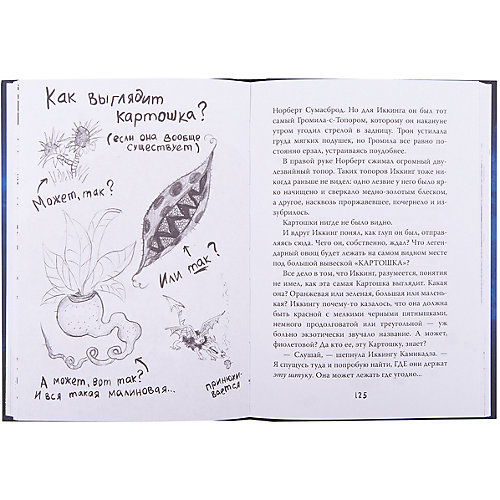 Как выглядит
картошка?
(если она вообще
существует)
Может, так?
Или так?
А может, вот так?
И вся такая малиновая...
принюхи-
вается
Норберт Сумасброд. Но для Иккинга он был тот
самый Громила-с-Топором, которому он накануне
утром угодил стрелой в задницу. Трон устилала
груда мягких подушек, но Громила все равно по-
стоянно ерзал, устраиваясь поудобнее.
В правой руке Норберт сжимал огромный дву-
лезвийный топор. Таких топоров Иккинг тоже
никогда раньше не видел: одно лезвие у него было яр-
ко начищено и сверкало медно-золотым блеском,
а другое, насквозь проржавевшее, почернело и из-
зубрилось.
Картошки нигде не было видно.
И вдруг Иккинг понял, как глуп он был, отправ-
ляясь сюда. Чего он, собственно, ждал? Что леген-
дарный овощ будет лежать на самом видном месте
под большой вывеской «КАРТОШКА»?
Все дело в том, что Иккинг, разумеется, понятия
не имел, как эта самая Картошка выглядит. Какая
она? Оранжевая или зеленая, большая или малень-
кая? Иккингу почему-то казалось, что она должна
быть красной с мелкими черными пятнышками,
немного продолговатой или треугольной — уж
больно экзотически звучало название. А может,
фиолетовой? Да кто ее, эту Картошку, знает?
— Слушай, — шепнула Иккингу Камикадза. —
Я спущусь туда и попробую найти, ГДЕ они держат
эту штуку. Она может лежать где угодно...
125